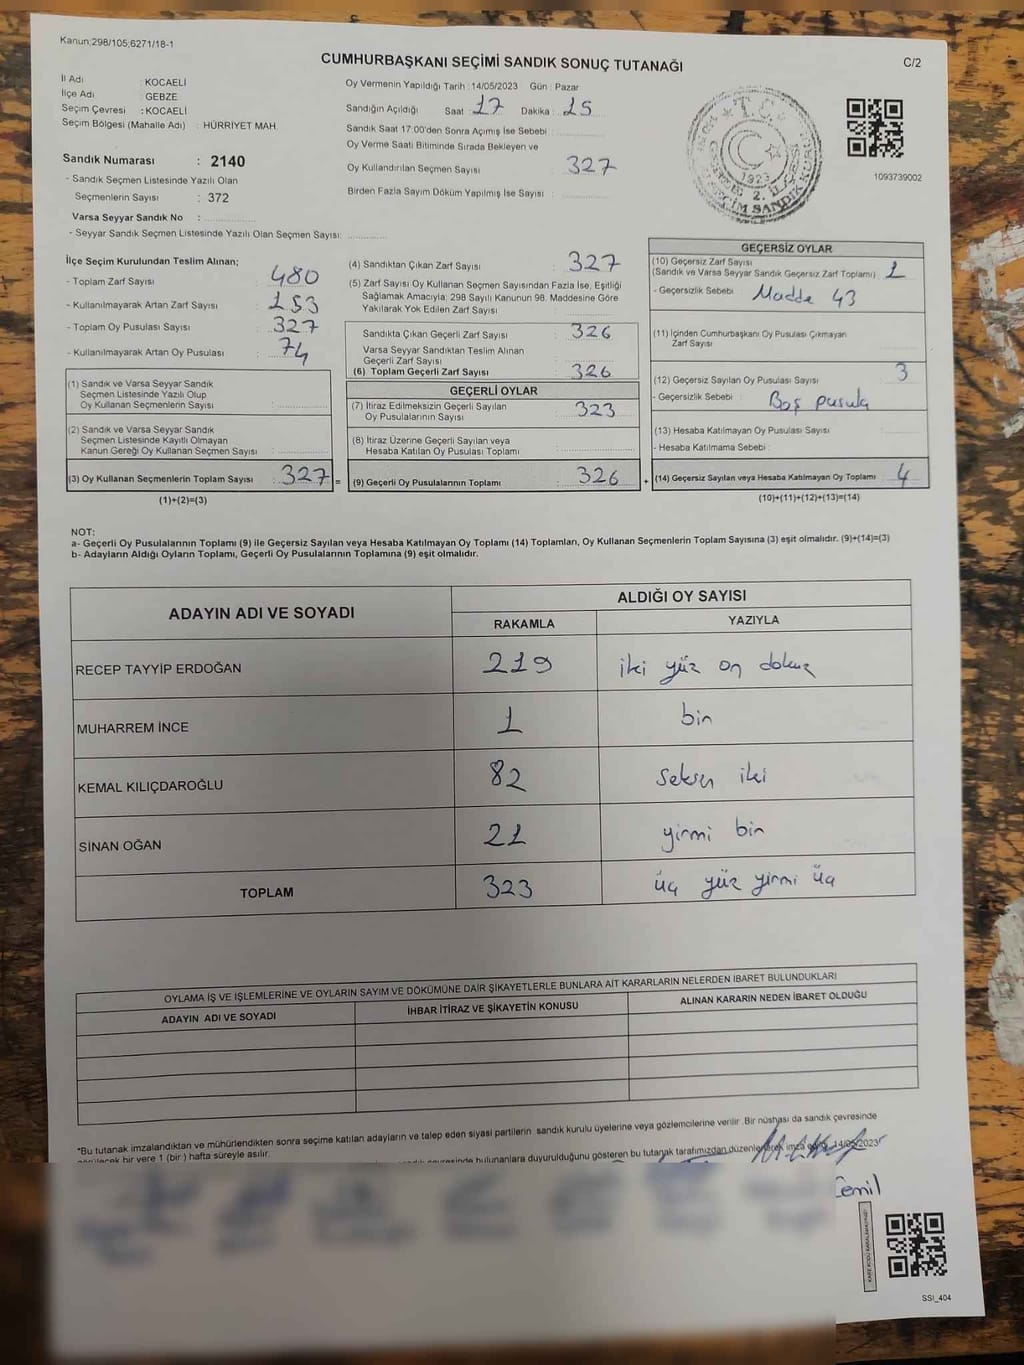 Kanun;298/105;6271/18-1
CUMHURBAŞKANI SEÇİMİ SANDIK SONUÇ TUTANAĞI
C/2
İl Adı : KOCAELİ
İlçe Adı : GEBZE
Seçim Çevresi : KOCAELİ
Seçim Bölgesi (Mahalle Adı) : HÜRRİYET MAH.
Sandık Numarası : 2140
- Sandık Seçmen Listesinde Yazılı Olan
Seçmenlerin Sayısı : 372
Varsa Seyyar Sandık No :
- Seyyar Sandık Seçmen Listesinde Yazılı Olan Seçmen Sayısı:
Oy Vermenin Yapıldığı Tarih : 14/05/2023 Gün : Pazar
Sandığın Açıldığı Saat : 17 Dakika : 15
Sandık Saat 17:00'den Sonra Açımış İse Sebebi :
Oy Verme Saati Bitiminde Sırada Bekleyen ve
Oy Kullandırılan Seçmen Sayısı : 327
Birden Fazla Sayım Döküm Yapılmış İse Sayısı :
T.C.
1923
1093739002
İlçe Seçim Kurulundan Teslim Alınan;
- Toplam Zarf Sayısı : 480
- Kullanılmayarak Artan Zarf Sayısı : 153
- Toplam Oy Pusulası Sayısı : 327
- Kullanılmayarak Artan Oy Pusulası : 74
(1) Sandık ve Varsa Seyyar Sandık
Seçmen Listesinde Yazılı Olup
Oy Kullanan Seçmenlerin Sayısı :
(2) Sandık ve Varsa Seyyar Sandık
Seçmen Listesinde Kayıtlı Olmayan
Kanun Gereği Oy Kullanan Seçmen Sayısı :
(3) Oy Kullanan Seçmenlerin Toplam Sayısı : 327 =
(1)+(2)=(3)
(4) Sandıktan Çıkan Zarf Sayısı : 327
(5) Zarf Sayısı Oy Kullanan Seçmen Sayısından Fazla İse, Eşitliği
Sağlamak Amacıyla; 298 Sayılı Kanunun 98. Maddesine Göre
Yakılarak Yok Edilen Zarf Sayısı :
Sandıkta Çıkan Geçerli Zarf Sayısı : 326
Varsa Seyyar Sandıktan Teslim Alınan
Geçerli Zarf Sayısı :
(6) Toplam Geçerli Zarf Sayısı : 326
GEÇERLİ OYLAR
(7) İtiraz Edilmeksizin Geçerli Sayılan
Oy Pusulalarının Sayısı : 323
(8) İtiraz Üzerine Geçerli Sayılan veya
Hesaba Katılan Oy Pusulası Toplamı :
(9) Geçerli Oy Pusulalarının Toplamı : 326 +
GEÇERSİZ OYLAR
(10) Geçersiz Zarf Sayısı
(Sandık ve Varsa Seyyar Sandık Geçersiz Zarf Toplamı) : 1
- Geçersizlik Sebebi : Madde 43
(11) İçinden Cumhurbaşkanı Oy Pusulası Çıkmayan
Zarf Sayısı :
(12) Geçersiz Sayılan Oy Pusulası Sayısı : 3
- Geçersizlik Sebebi : Boş pusula
(13) Hesaba Katılmayan Oy Pusulası Sayısı :
- Hesaba Katılmama Sebebi :
(14) Geçersiz Sayılan veya Hesaba Katılmayan Oy Toplamı : 4
(10)+(11)+(12)+(13)=(14)
NOT:
a- Geçerli Oy Pusulalarının Toplamı (9) ile Geçersiz Sayılan veya Hesaba Katılmayan Oy Toplamı (14) Toplamları, Oy Kullanan Seçmenlerin Toplam Sayısına (3) eşit olmalıdır. (9)+(14)=(3)
b- Adayların Aldığı Oyların Toplamı, Geçerli Oy Pusulalarının Toplamına (9) eşit olmalıdır.
ADAYIN ADI VE SOYADI
ALDIĞI OY SAYISI
RAKAMLA YAZIYLA
RECEP TAYYİP ERDOĞAN 219 iki yüz on dokuz
MUHARREM İNCE 1 bin
KEMAL KILIÇDAROĞLU 82 seksen iki
SİNAN OĞAN 21 yirmi bin
TOPLAM 323 üç yüz yirmi üç
OYLAMA İŞ VE İŞLEMLERİNE VE OYLARIN SAYIM VE DÖKÜMÜNE DAİR ŞİKAYETLERLE BUNLARA AİT KARARLARIN NELERDEN İBARET BULUNDUKLARI
ADAYIN ADI VE SOYADI İHBAR İTİRAZ VE ŞİKAYETİN KONUSU ALINAN KARARIN NEDEN İBARET OLDUĞU
*Bu tutanak imzalandıktan ve mühürlendikten sonra seçime katılan adayların ve talep eden siyasi partilerin sandık kurulu üyelerine veya gözlemcilerine verilir. Bir nüshası da sandık çevresinde
bir yere 1 (bir) hafta süreyle asılır.
bulunanlara duyurulduğunu gösteren bu tutanak tarafımızdan 14/05/2023
Cemil
SSI_404